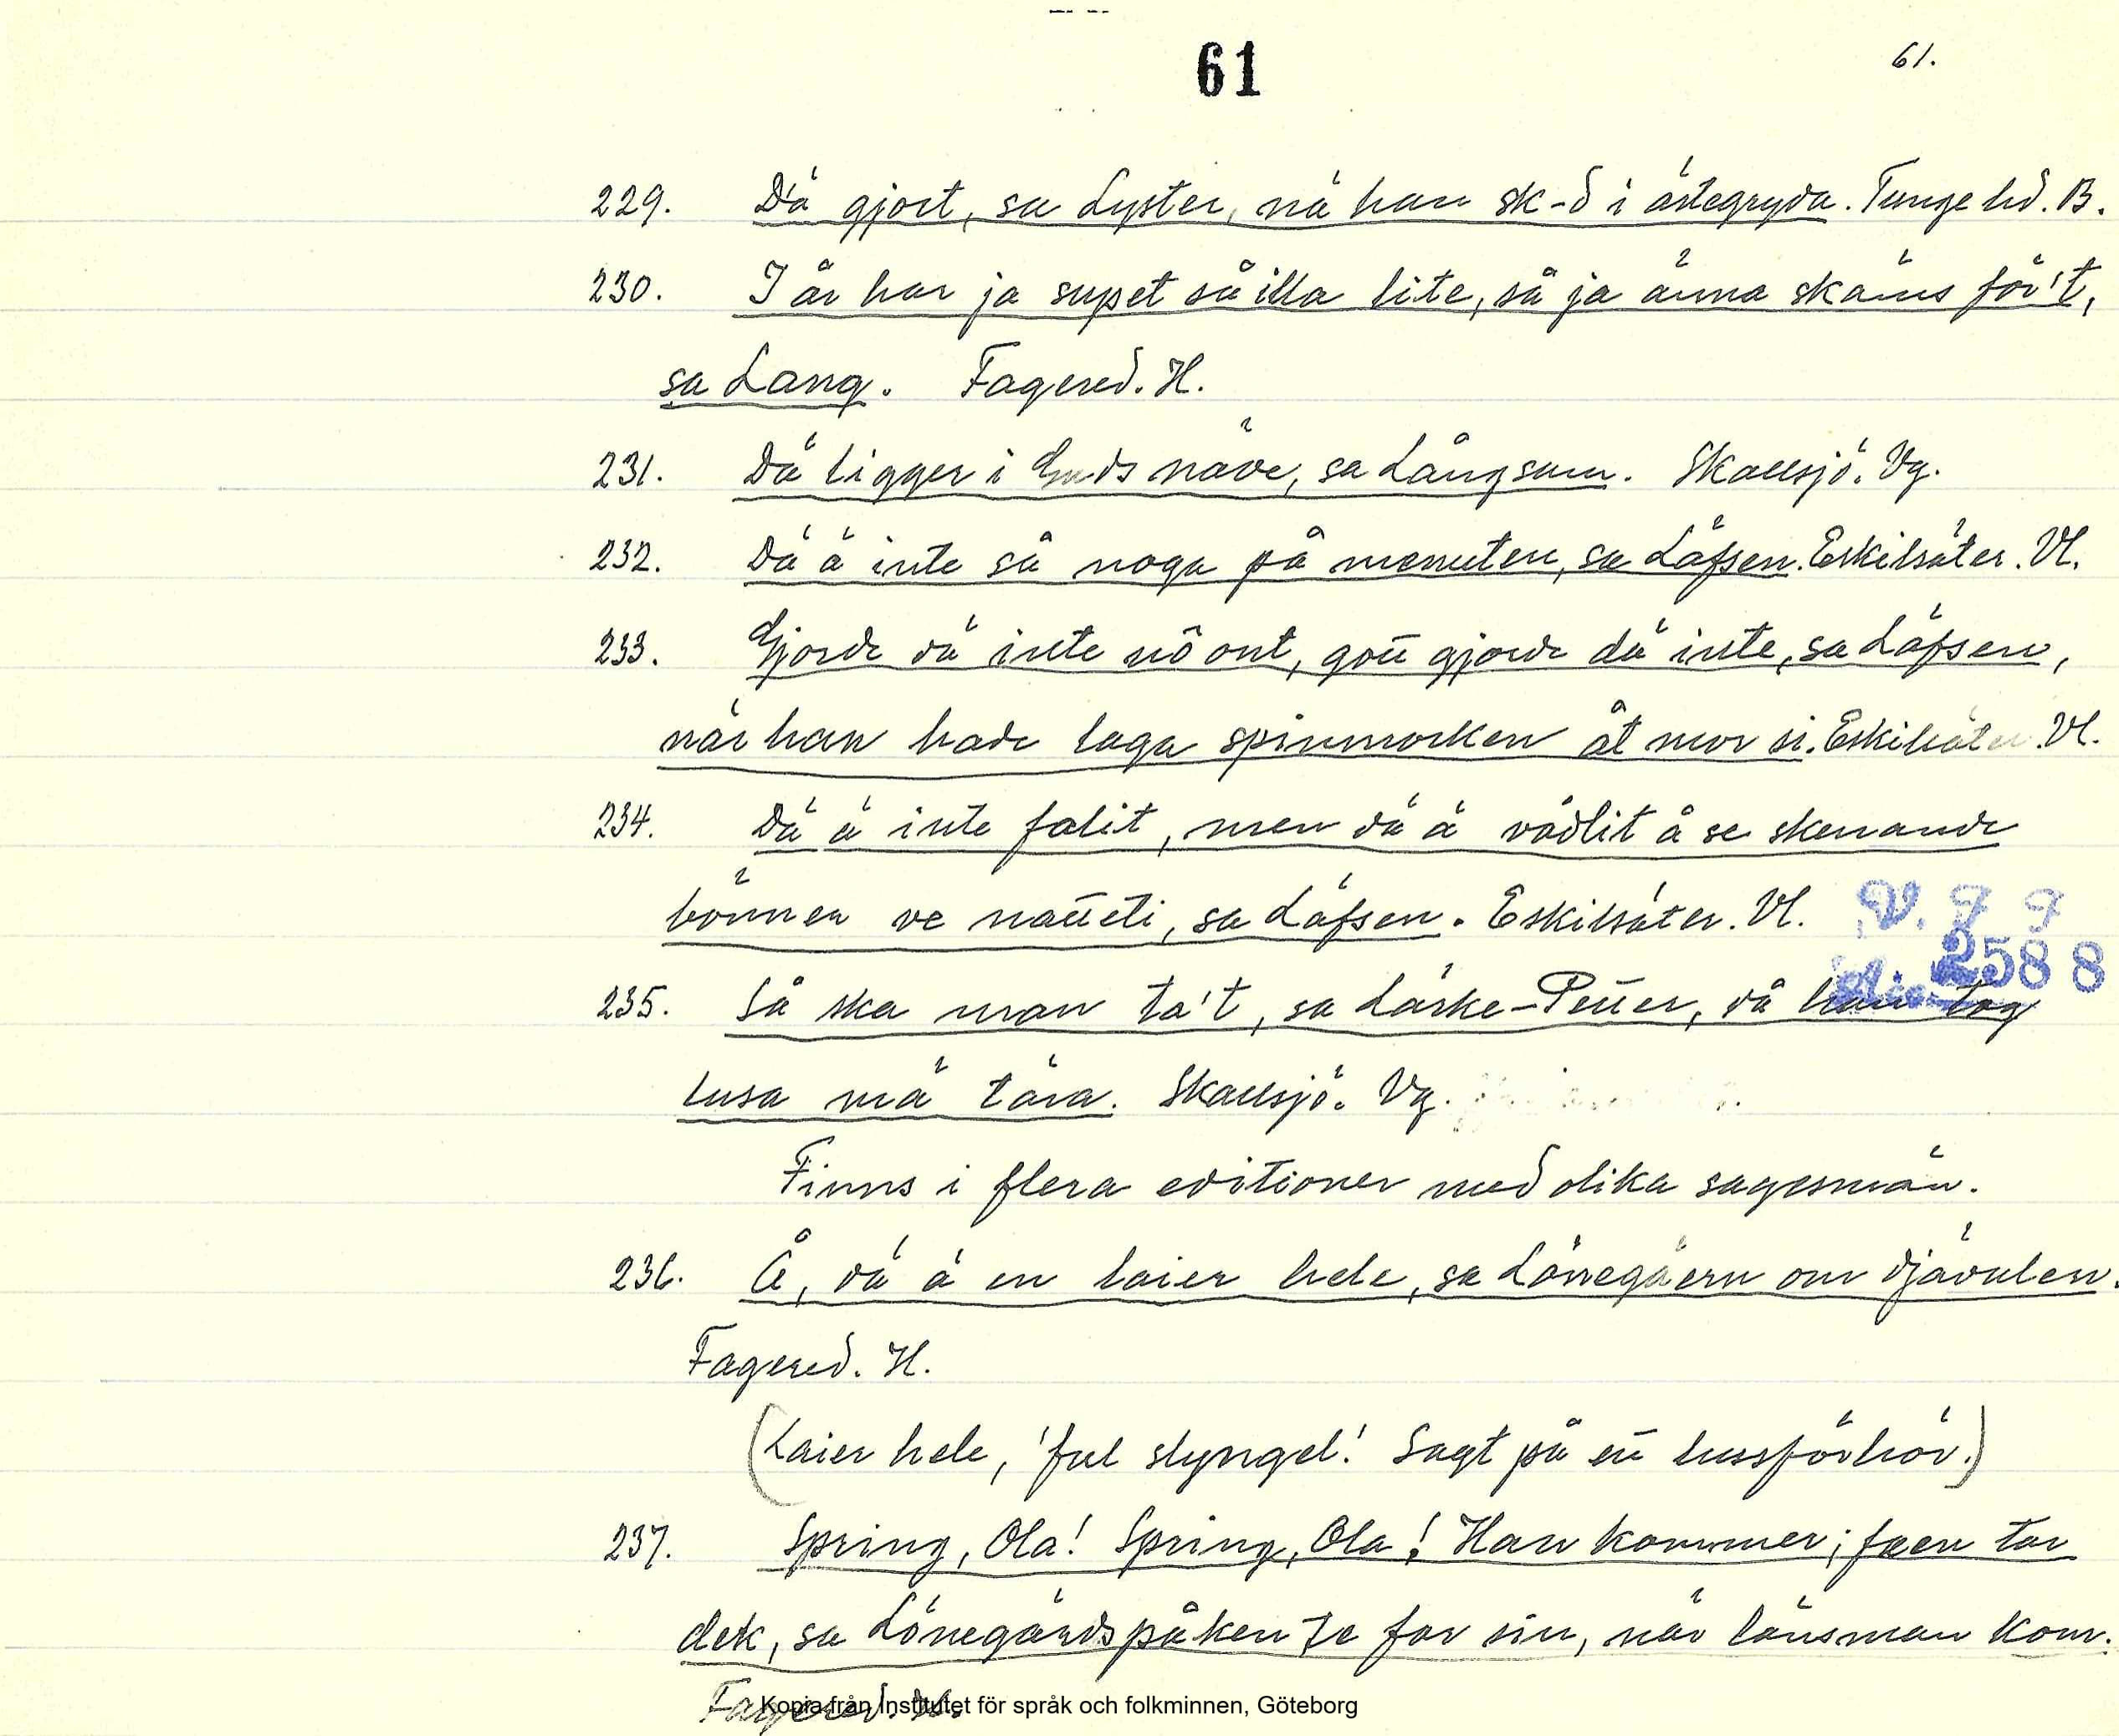 61
61.
229. Dä gjort, sa Lyster, nä han sk-d i ärtegryda. Tunge hd. B.
230. I år har ja supet så illa lite, så ja änna skäms för't,
sa Lang. Fagered. H.
231. Dä ligger i Guds näve, sa Långsam. Skallsjö. Vg.
232. Dä ä inte så noga på menuten, sa Läfsen. Eskilsäter. Vl.
233. Gjorde dä inte nô ont, gott gjorde dä inte, sa Läfsen,
när han hade taga spinnrocken åt mor si. Eskilsäter. Vl.
234. Dä ä inte falit, men dä ä vådlit å se skenande
bönner ve natteti, sa Läfsen. Eskilsäter. Vl.
V. F F
2588
235. Så ska man ta't, sa Lärke-Petter, då han tog
lusa mä tära. Skallsjö. Vg.
Finns i flera editioner med olika sagesmän.
236. Å, dä ä en laier hele, sa Lönegåern om djävulen.
Fagered. H.
(Laier hele, 'ful slyngel'. Sagt på ett husförhör.)
237. Spring, Ola! Spring, Ola! Han kommer; faen tar
dek, sa Lönegårdspåken te far sin, när länsman kom.
Fagered. H.
Kopia från Institutet för språk och folkminnen, Göteborg